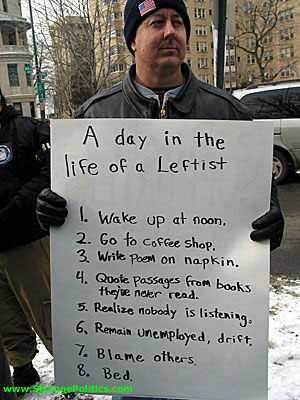 A day in the
life of a Leftist
1. Wake up at noon.
2. Go to coffee shop.
3. Write poem on napkin.
4. Quote passages from books
they've never read.
5. Realize nobody is listening.
6. Remain unemployed, drift.
7. Blame others.
8. Bed.
www.StrangePolitics.com